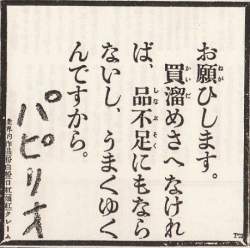 お願ひします。
買溜めさへなけれ
ば、品不足にもなら
ないし、うまくゆく
んですから。
パピリオ